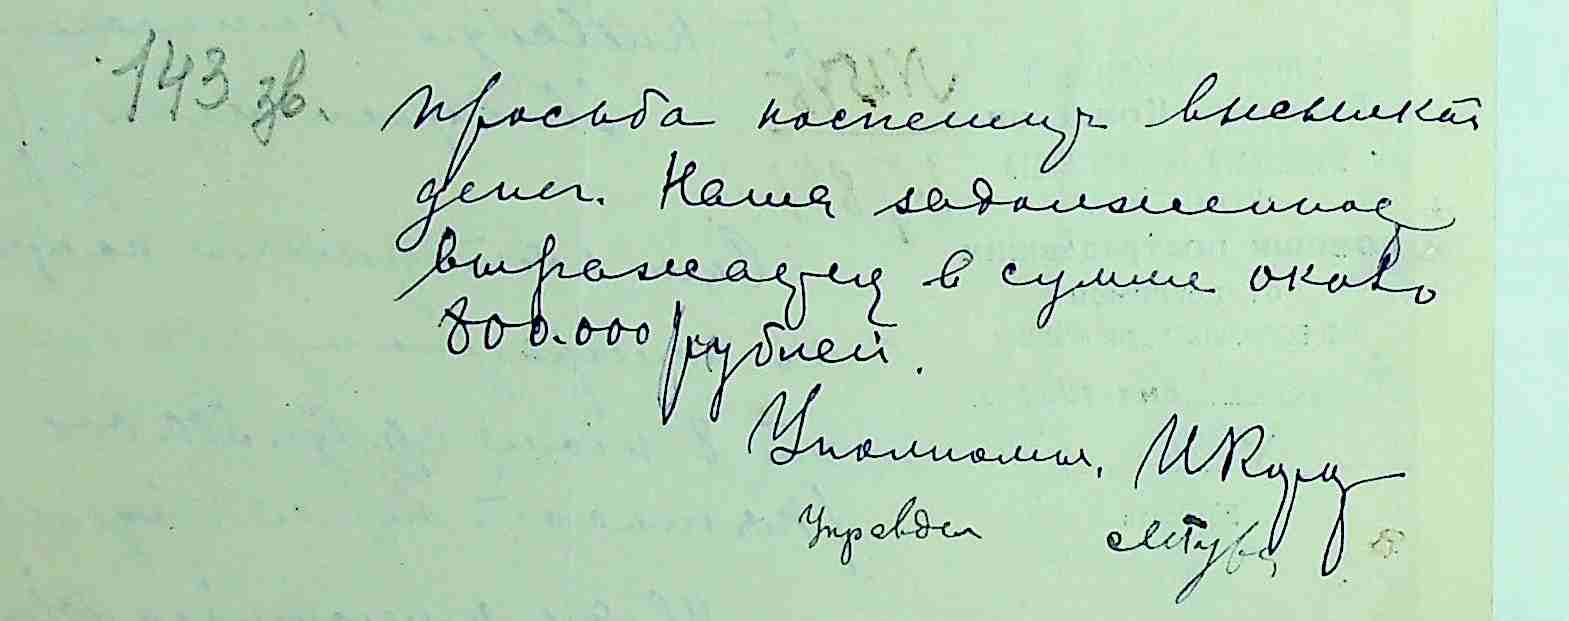 143 зв.
просьба поспешить высылкой
денег. Наша задолженность
выражается в сумме около
800.000 рублей.
Уполном.
Управдел